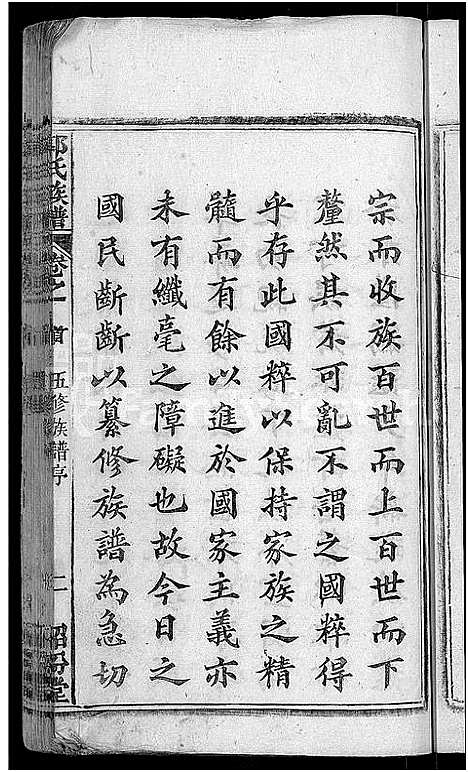 宗而收族百世而上百世而下
釐然其不可亂不謂之國粹得
乎存此國粹以保持家族之精
髓而有餘以進於國家主義亦
未有纖毫之障礙也故今日之
國民齗齗以纂修族譜為急切
氏族譜
卷之首
五修族譜序
二
堂